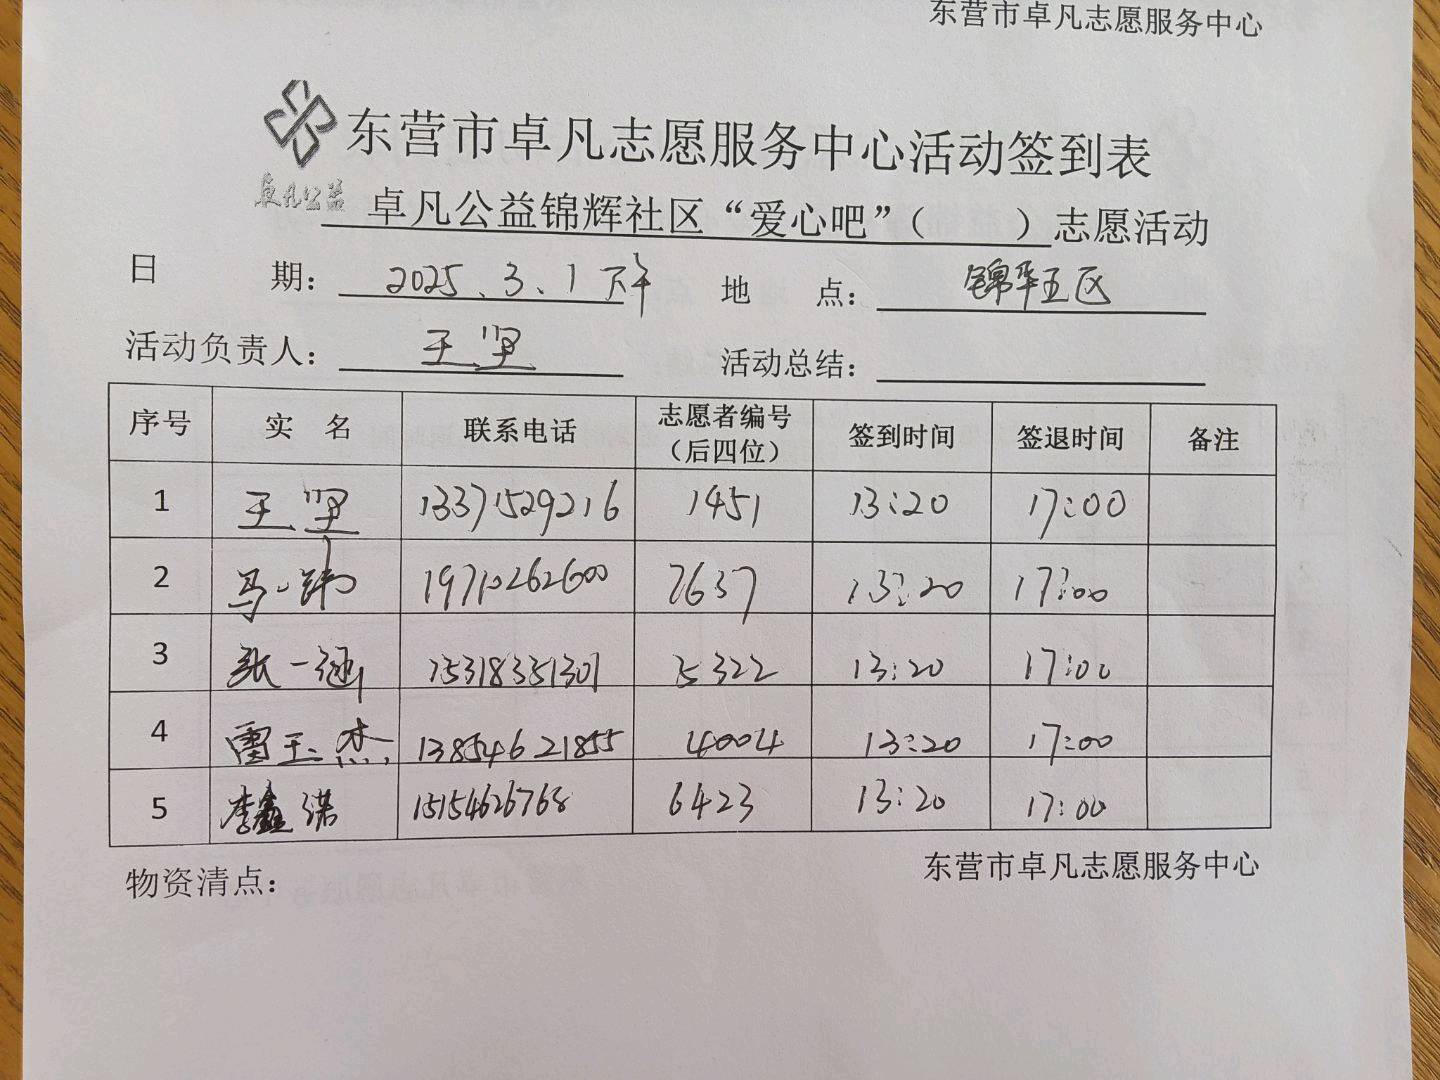 东营市卓凡志愿服务中心
东营市卓凡志愿服务中心活动签到表
卓凡公益
卓凡公益锦辉社区“爱心吧”（　　）志愿活动
日 期： 2025.3.1下午 地 点： 锦华五区
活动负责人： 王坚 活动总结：
序号 实 名 联系电话 志愿者编号（后四位） 签到时间 签退时间 备注
1 王坚 13371529216 1451 13:20 17:00
2 马 19710262600 7637 13:20 17:00
3 张一涵 15318351301 5322 13:20 17:00
4 雷玉杰 13854621855 4004 13:20 17:00
5 李鑫诺 15154626768 6423 13:20 17:00
物资清点： 东营市卓凡志愿服务中心